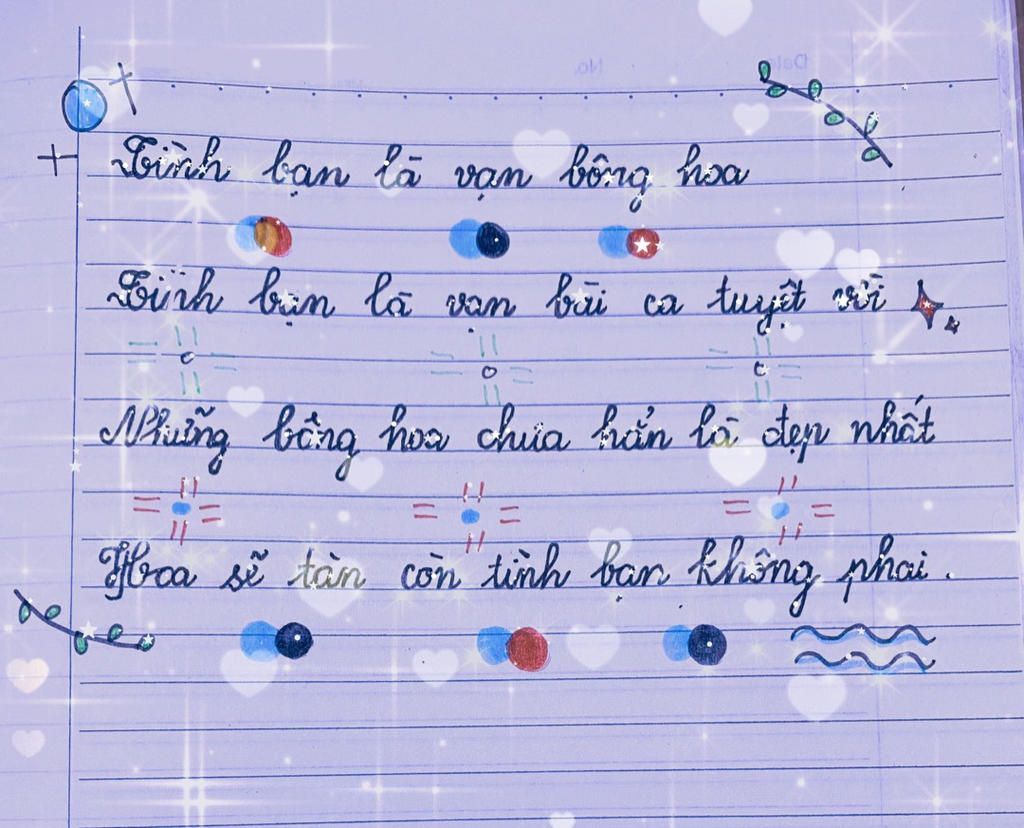 Tình bạn là vạn bông hoa
Tình bạn là vạn bài ca tuyệt vời
Những bông hoa chưa hẳn là đẹp nhất
Hoa sẽ tàn còn tình bạn không phai.